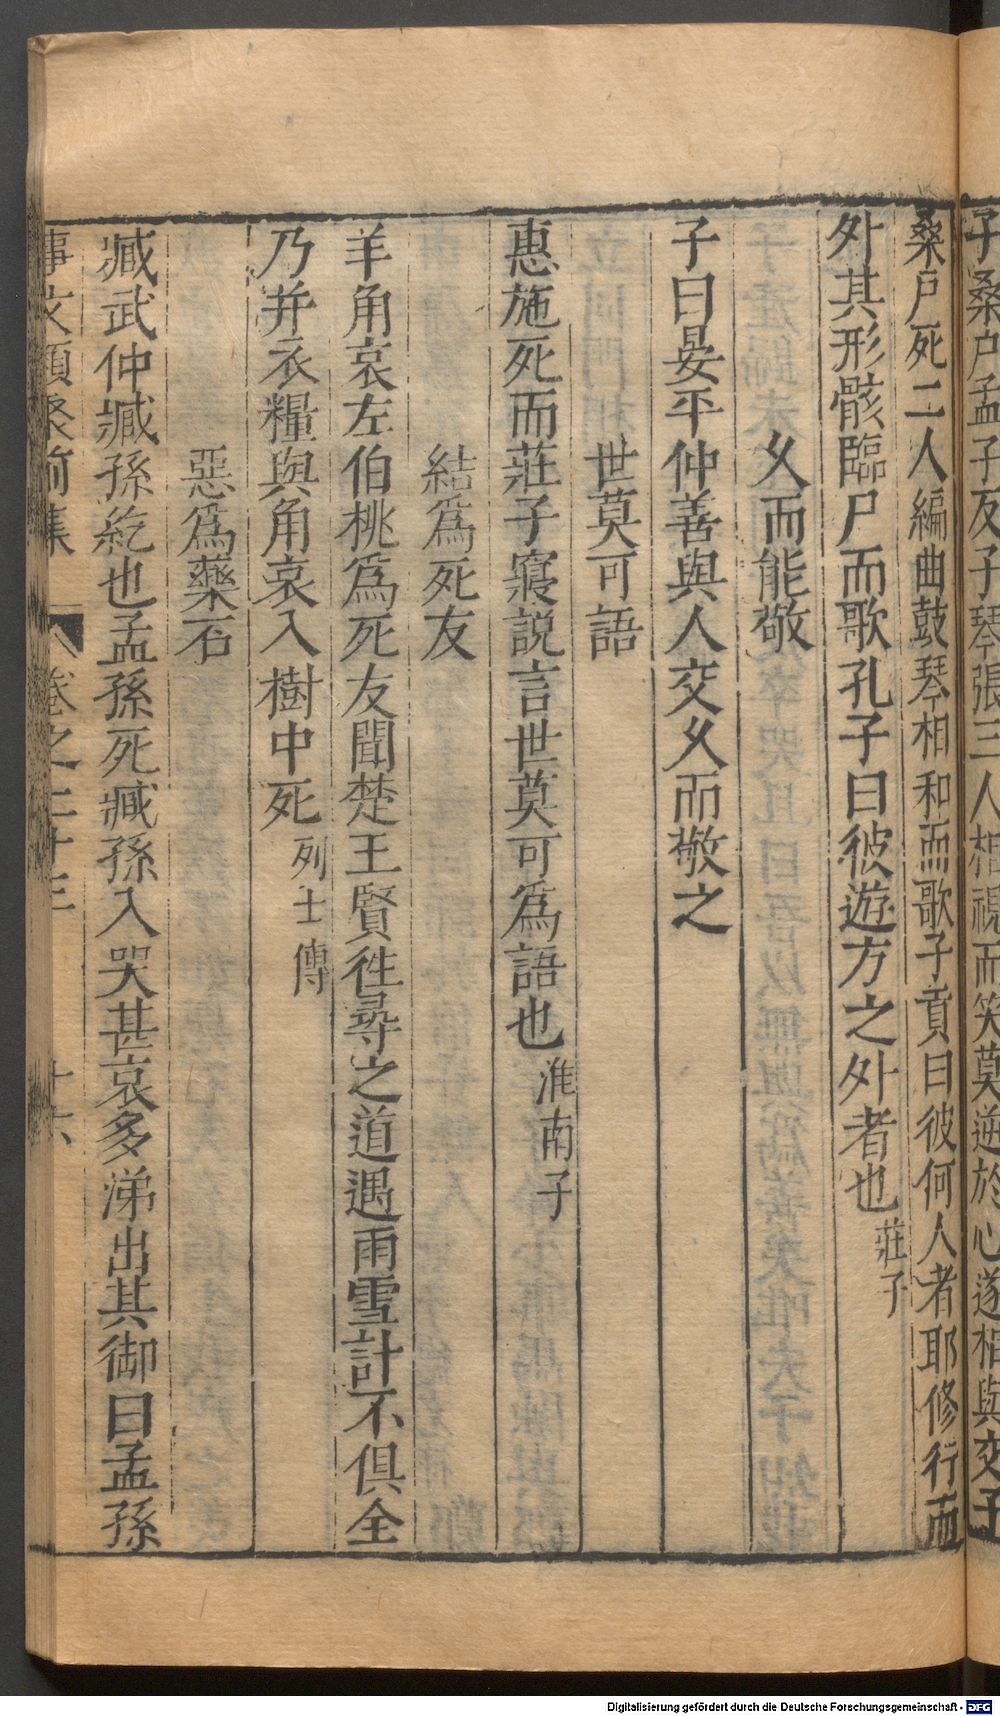 子桑户孟子反子琴張三人相視而笑莫逆於心遂相與交子
桑户死二人編曲鼓琴相和而歌子貢曰彼何人者耶修行而
外其形骸臨尸而歌孔子曰彼遊方之外者也 莊子
乆而能敬
子曰晏平仲善與人交乆而敬之
世莫可語
惠施死而莊子寢説言世莫可為語也 淮南子
結為死友
羊角哀左伯桃為死友聞楚王賢徃尋之道遇雨雪計不俱全
乃并衣糧與角哀入樹中死 列士傳
惡為藥石
臧武仲臧孫紇也孟孫死臧孫入哭甚哀多涕出其御曰孟孫
事文類聚前集 卷之二十三 十六
Digitalisierung gefördert durch die Deutsche Forschungsgemeinschaft - DFG